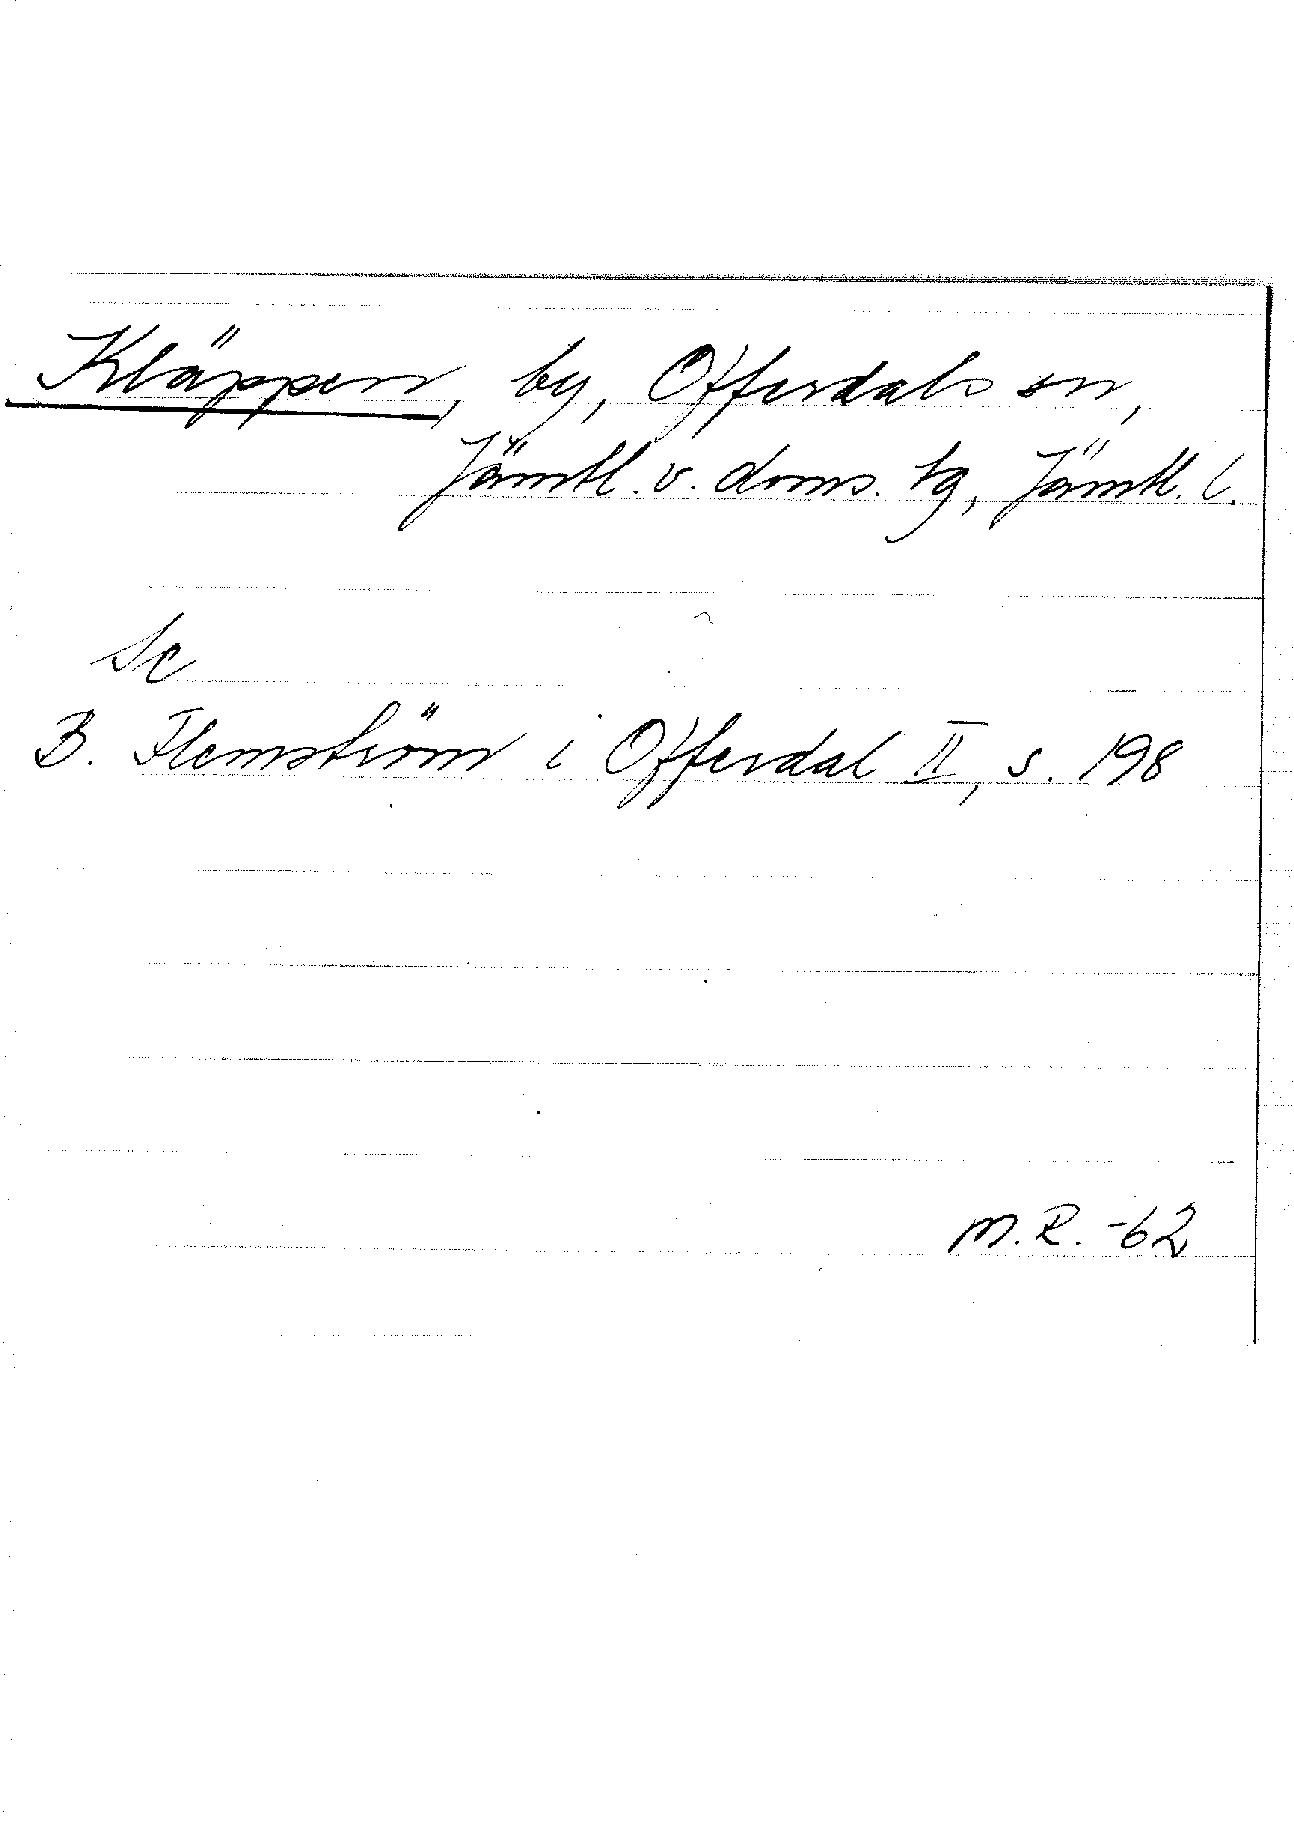 Kläppen, by, Offerdals sn,
Jämtl. v. doms. tg, Jämtl. l.
Se
B. Flemström i Offerdal II, s. 198
M.R. -62